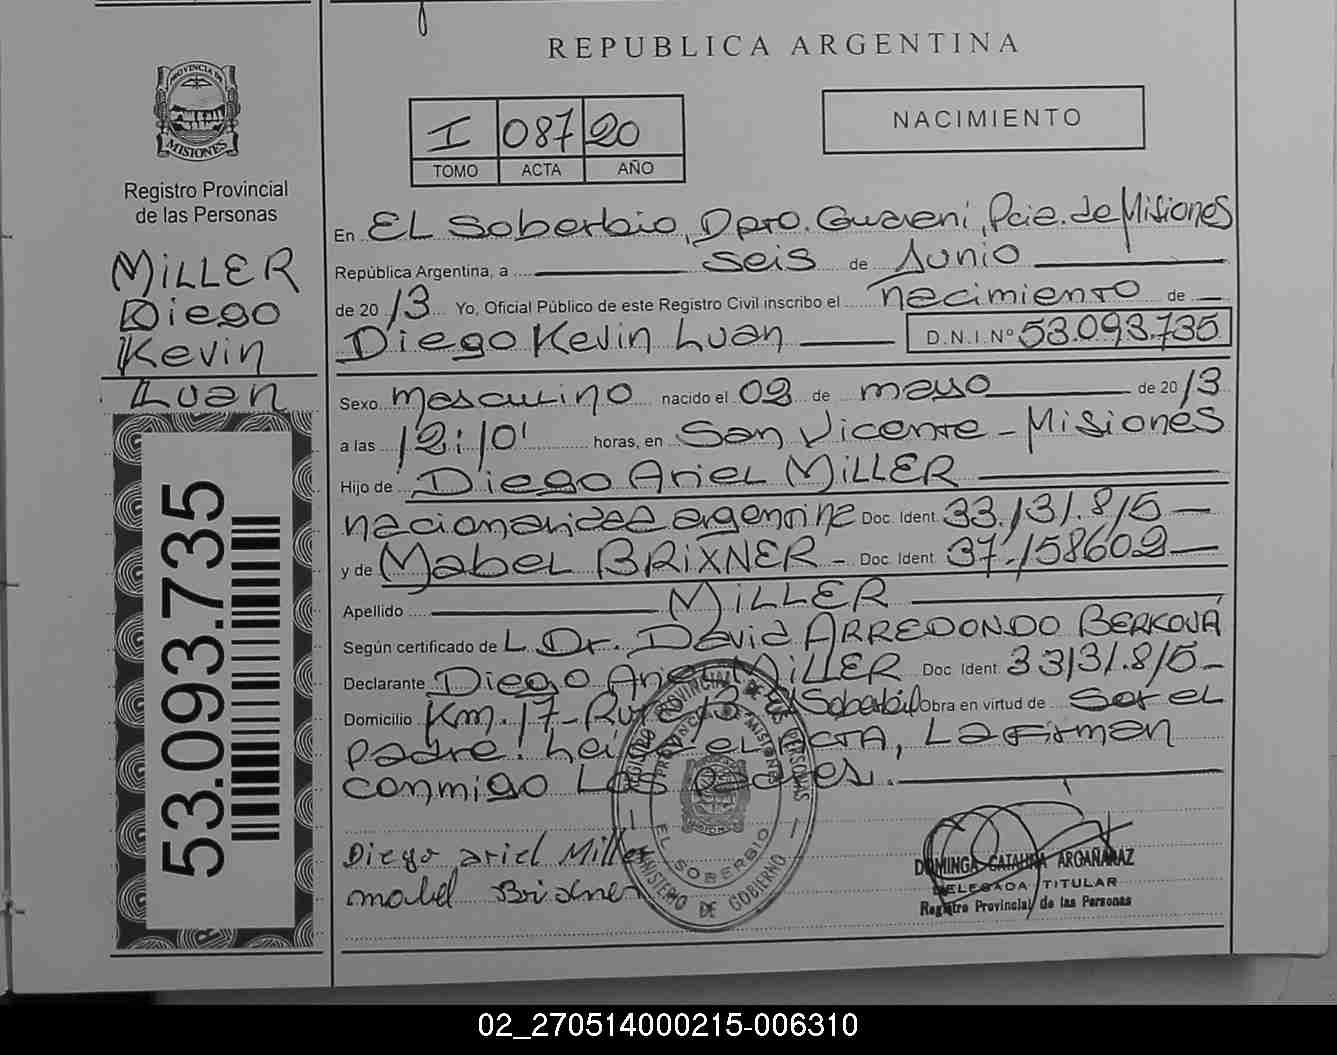 REPUBLICA ARGENTINA
PROVINCIA DE
MISIONES
Registro Provincial
de las Personas
MILLER
Diego
Kevin
Luan
53.093.735
I 087 20
TOMO ACTA AÑO
NACIMIENTO
En EL Soberbio, Dpto. Guarani, Pcia. de Misiones
República Argentina, a seis de Junio
de 2013 Yo, Oficial Público de este Registro Civil inscribo el nacimiento de
Diego Kevin Luan D.N.I. Nº 53.093.735
Sexo masculino nacido el 02 de mayo de 2013
a las 12:10' horas, en San Vicente - Misiones
Hijo de Diego Ariel MILLER
nacionalidad argentina Doc. Ident. 33.131.815
y de Mabel BRIXNER - Doc. Ident. 37.158602
Apellido MILLER
Según certificado de L Dr. David ARREDONDO BERKOVA
Declarante Diego Ariel MILLER Doc Ident 33131.815-
Domicilio Km. 17 - Ruta 13 El Soberbio Obra en virtud de Ser el
padre. el ACTA, La Firman
conmigo Los padres.
Diego ariel Miller
mabel Brixner
REGISTRO PROVINCIAL DE LAS PERSONAS
PROVINCIA DE MISIONES
EL SOBERBIO
MINISTERIO DE GOBIERNO
DOMINGA CATALINA ARGAÑARAZ
DELEGADA TITULAR
Registro Provincial de las Personas
02_270514000215-006310